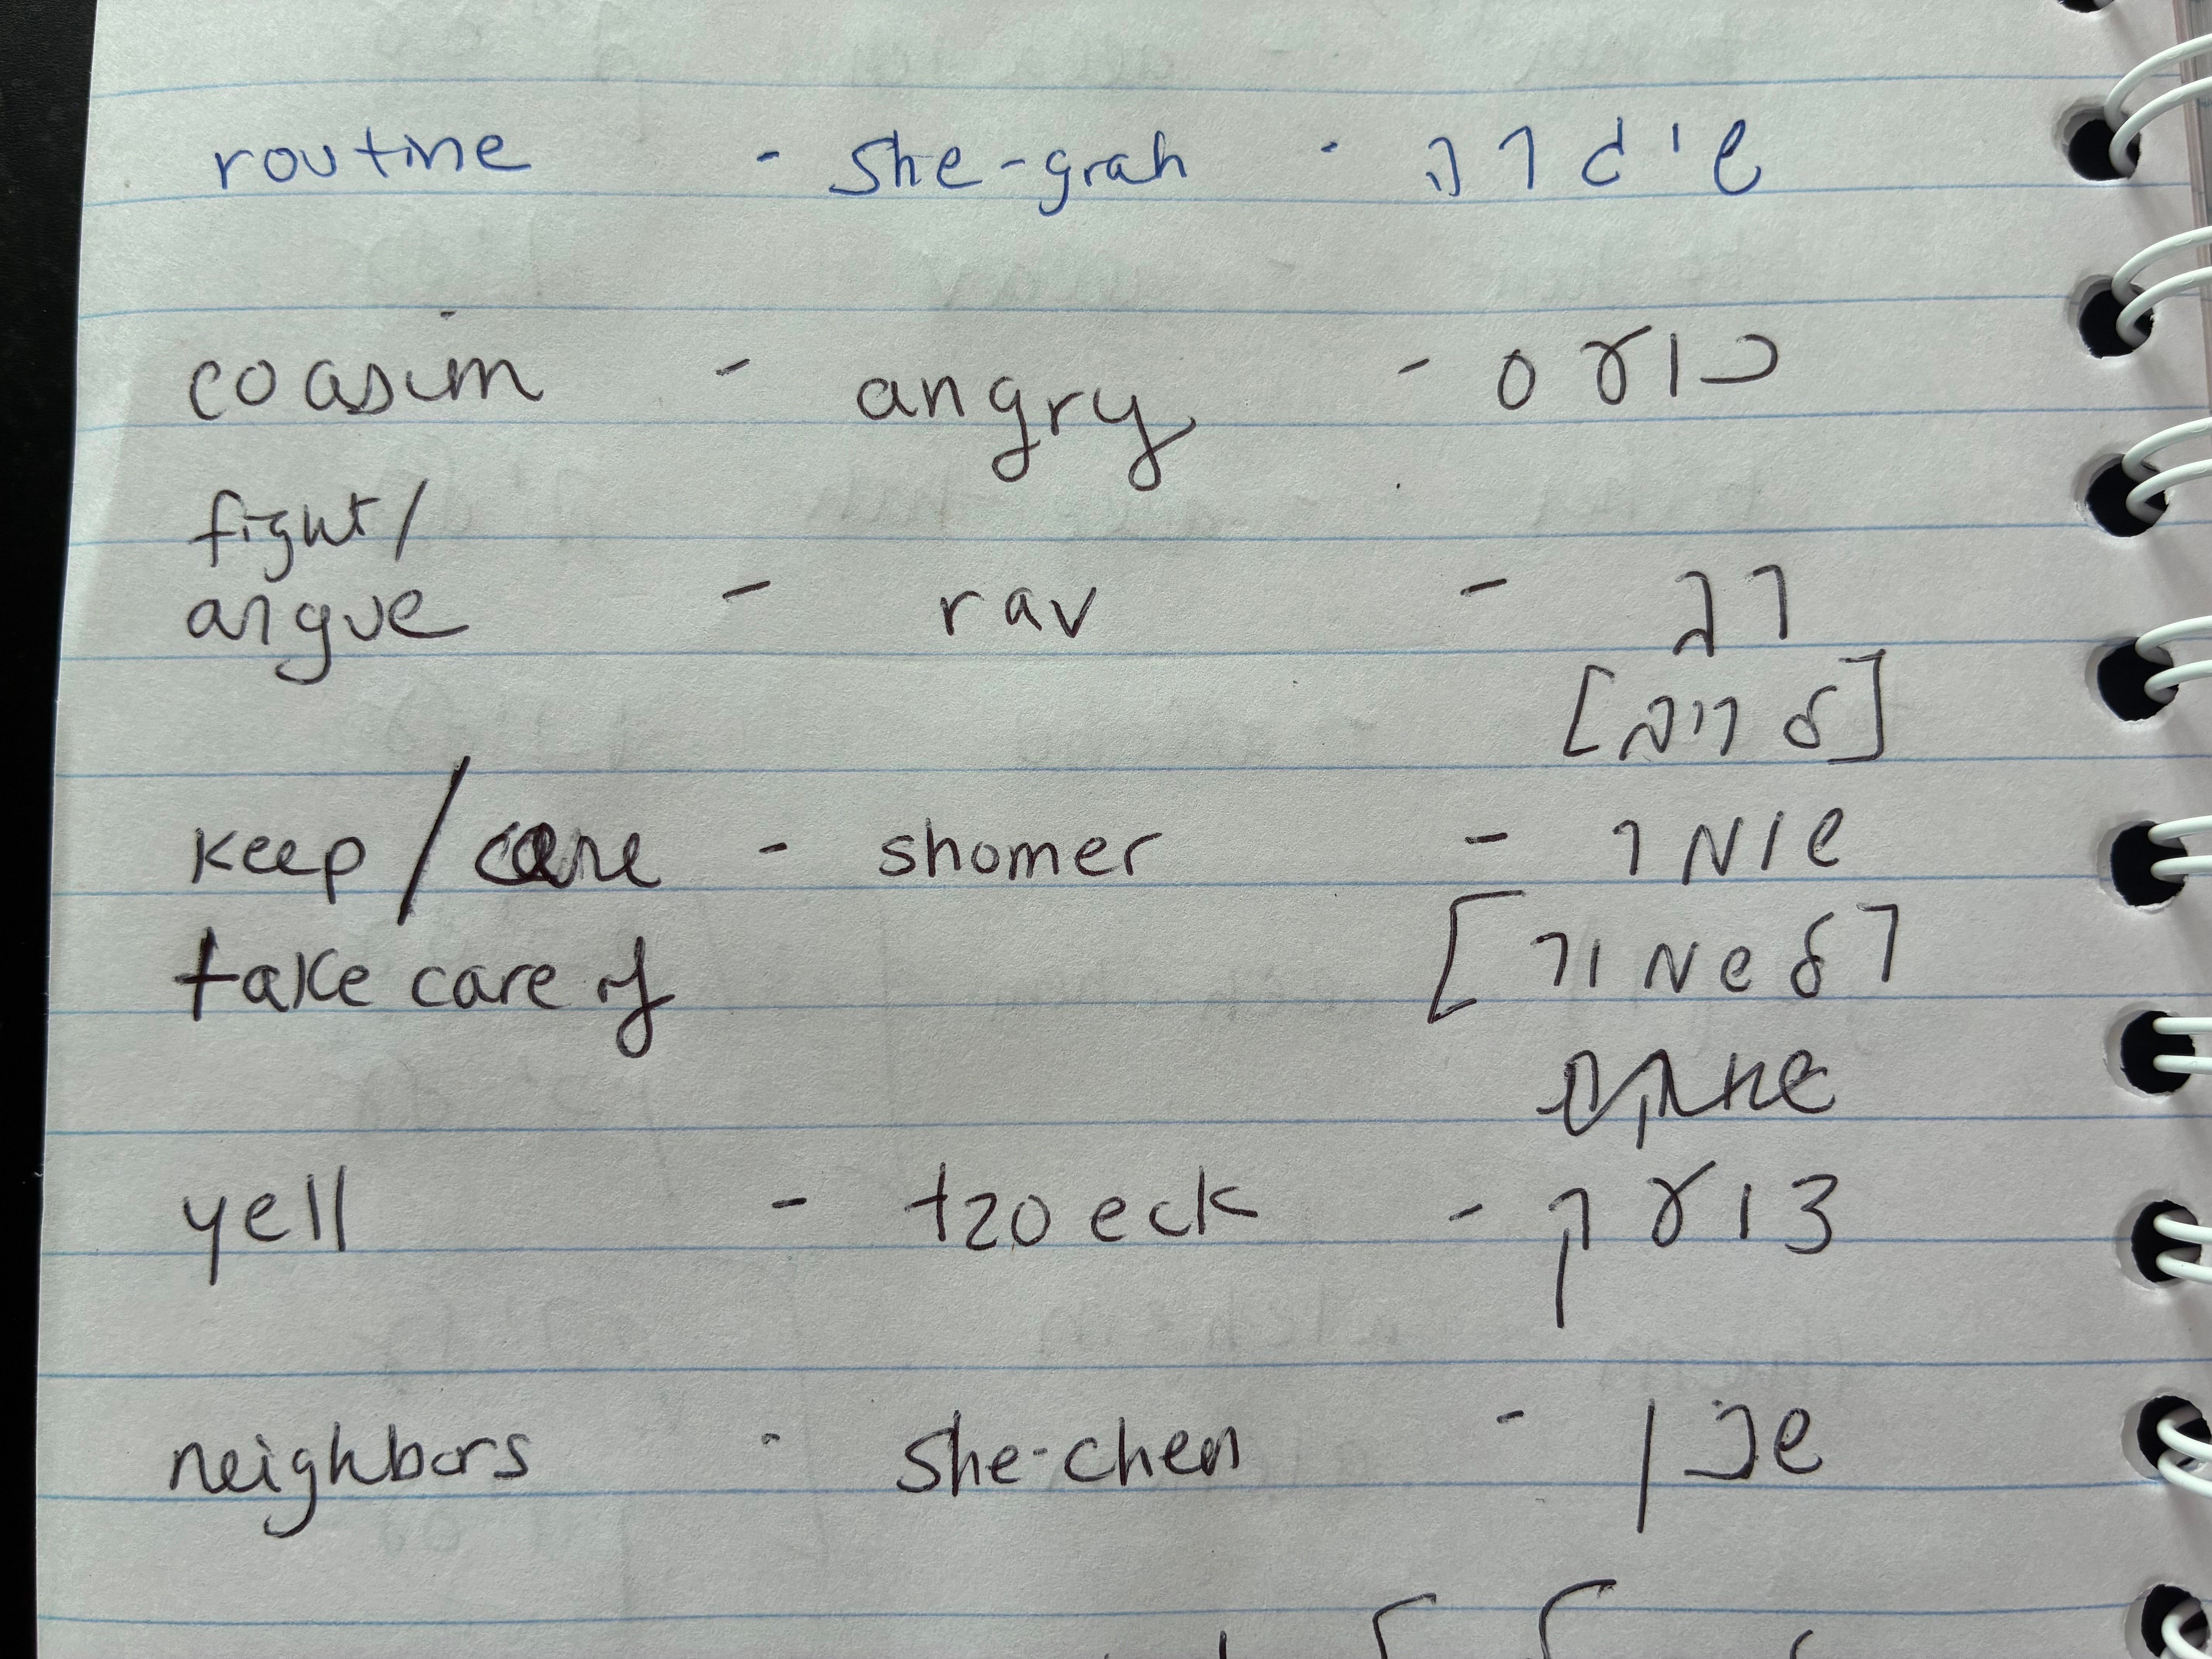 routine - she-grah - שיגרה
coasim - angry - כועס
fight/
argue - rav - רב
[לריב]
keep / care - shomer - שומר
take care of [לשמור]
yell - tzoeck - צועק
neighbors - she-chen - שכן